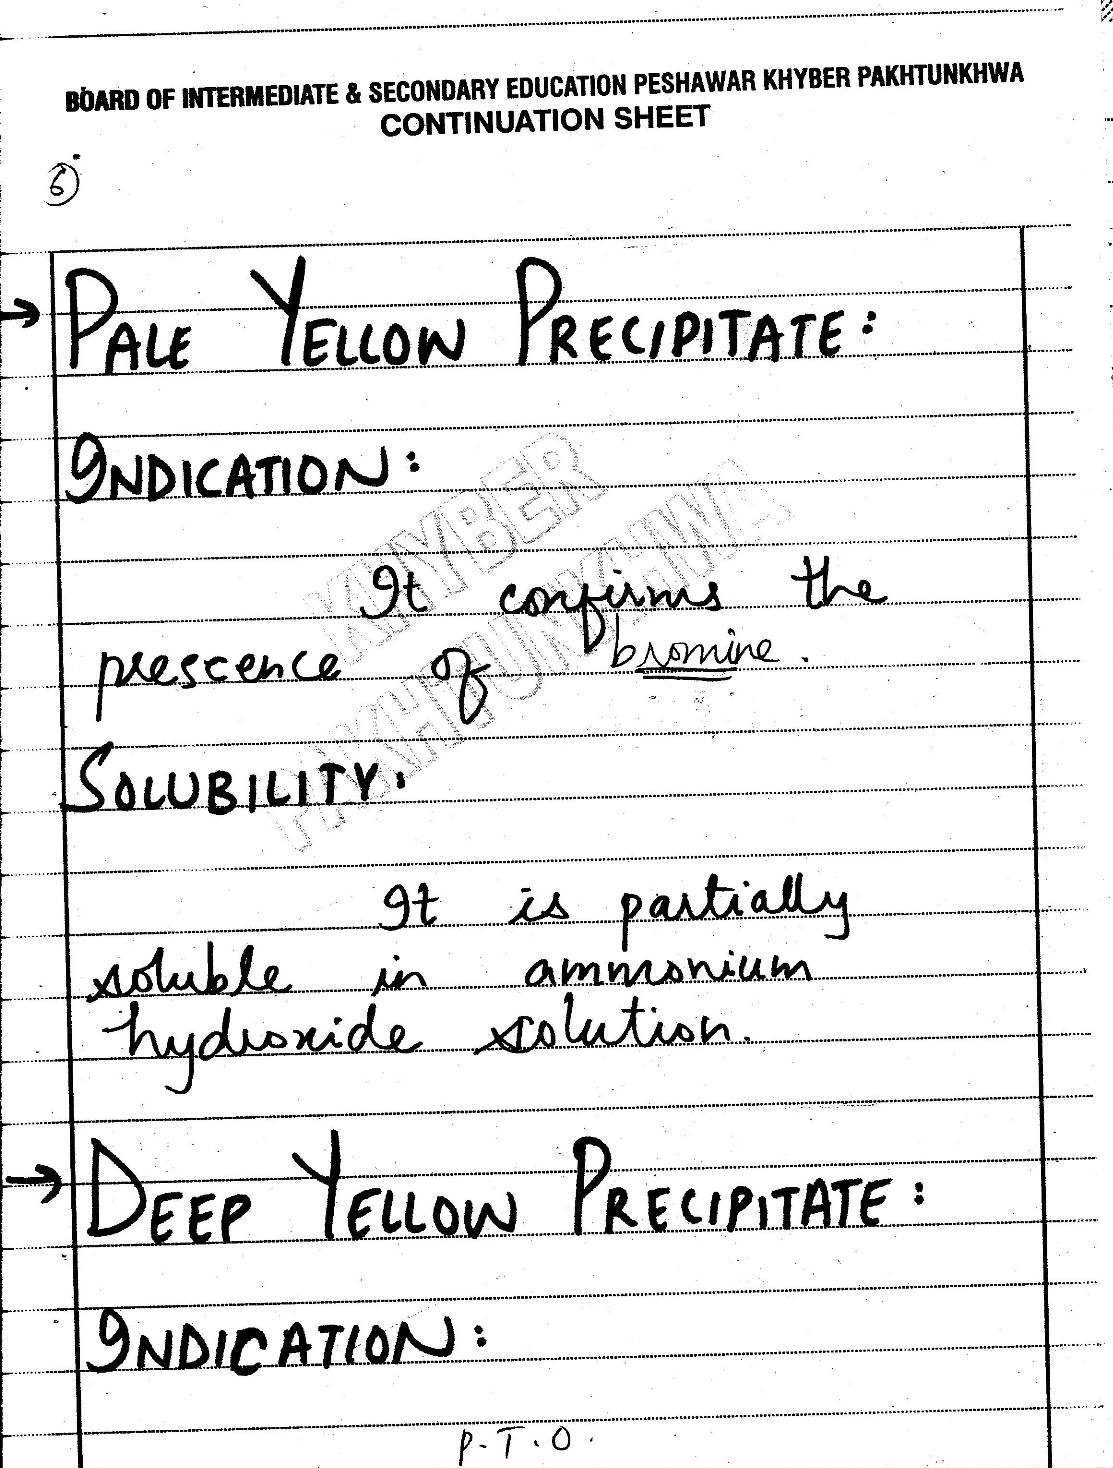 BOARD OF INTERMEDIATE & SECONDARY EDUCATION PESHAWAR KHYBER PAKHTUNKHWA
CONTINUATION SHEET
6
→ PALE YELLOW PRECIPITATE:
INDICATION:
It confirms the
prescence of bromine.
SOLUBILITY:
It is partially
soluble in ammonium
hydroxide solution.
→ DEEP YELLOW PRECIPITATE:
INDICATION:
P.T.O.
KHYBER
PAKHTUNKHWA